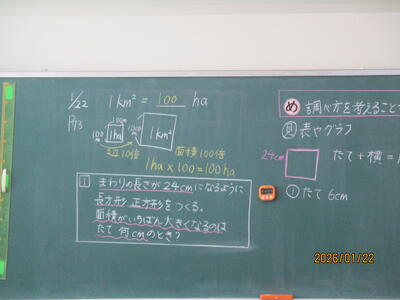 1/22
P73
1km² = 100 ha
100m
100
1ha
1000
1km²
辺10倍
面積100倍
1ha × 100 = 100ha
1 まわりの長さが24cmになるように
長方形、正方形をつくる。
面積がいちばん大きくなるのは
たて何cmのとき?
め 調べ方を考えること
見 表やグラフ
24cm
たて+横=
① たて 6cm
2026/01/22